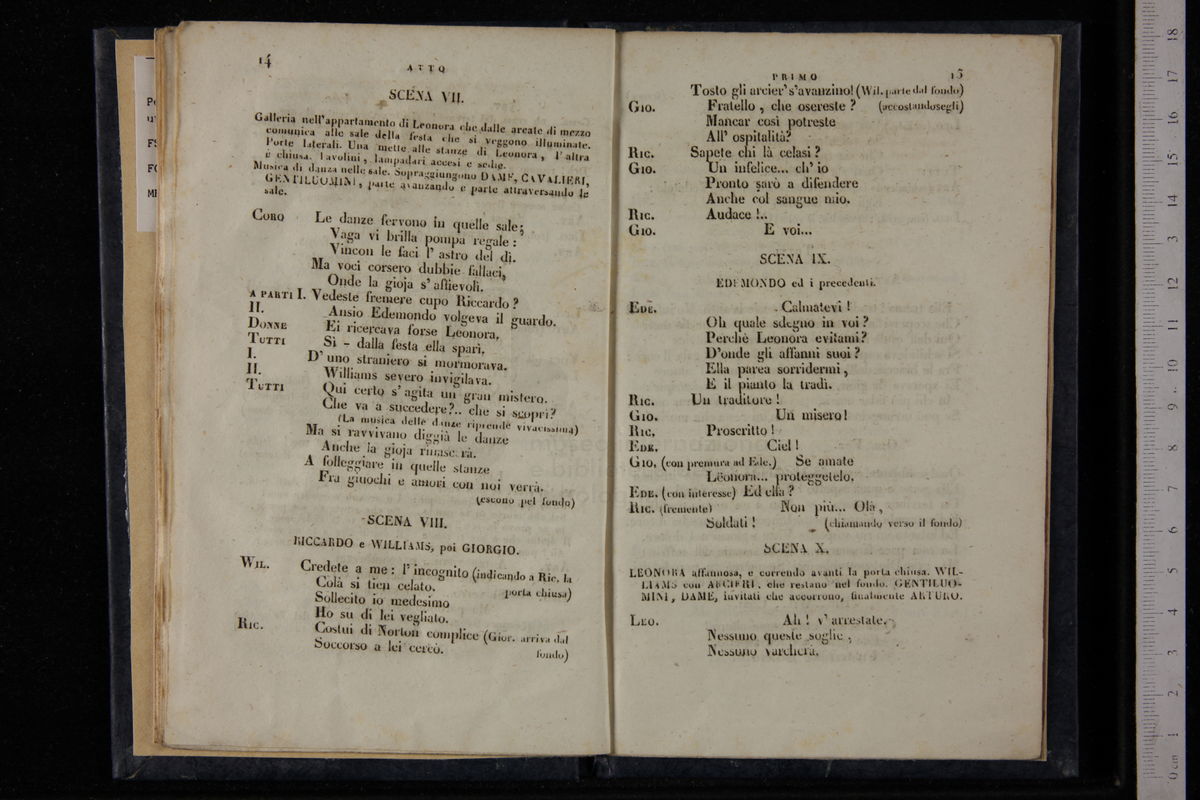 14
ATTO
SCENA VII.
Galleria nell'appartamento di Leonora che dalle arcate di mezzo
comunica alle sale della festa che si veggono illuminate.
Porte laterali. Una mette alle stanze di Leonora, l'altra
è chiusa. Tavolini, lampadari accesi e sedie.
Musica di danza nelle sale. Sopraggiungono DAME, CAVALIERI,
GENTILUOMINI, parte avanzando e parte attraversando le
sale.
CORO Le danze fervono in quelle sale;
Vaga vi brilla pompa regale:
Vincon le faci l'astro del dì.
Ma voci corsero dubbie fallaci,
Onde la gioja s'affievolì.
A PARTI I. Vedeste fremere cupo Riccardo?
II. Ansio Edemondo volgeva il guardo.
DONNE Ei ricercava forse Leonora,
TUTTI Sì - dalla festa ella sparì.
I. D'uno straniero si mormorava.
II. Williams severo invigilava.
TUTTI Qui certo s'agita un gran mistero.
Che va a succedere?.. che si scoprì?
(La musica delle danze riprende vivacissima)
Ma si ravvivano diggià le danze
Anche la gioja rinascerà.
A folleggiare in quelle stanze
Fra giuochi e amori con noi verrà.
(escono pel fondo)
SCENA VIII.
RICCARDO e WILLIAMS, poi GIORGIO.
WIL. Credete a me: l'incognito (indicando a Ric. la
Colà si tien celato. porta chiusa)
Sollecito io medesimo
Ho su di lei vegliato.
RIC. Costui di Norton complice (Gior. arriva dal
Soccorso a lei cercò. fondo)
PRIMO
15
Tosto gli arcier's'avanzino! (Wil. parte dal fondo)
GIO. Fratello, che osereste? (accostandosegli)
Mancar così potreste
All'ospitalità?
RIC. Sapete chi là celasi?
GIO. Un infelice... ch'io
Pronto sarò a difendere
Anche col sangue mio.
RIC. Audace!..
GIO. E voi...
SCENA IX.
EDEMONDO ed i precedenti.
EDE. Calmatevi!
Oh quale sdegno in voi?
Perchè Leonora evitami?
D'onde gli affanni suoi?
Ella parea sorridermi,
E il pianto la tradì.
RIC. Un traditore!
GIO. Un misero!
RIC. Proscritto!
EDE. Ciel!
GIO. (con premura ad Ede.) Se amate
Leonora... proteggetelo.
EDE. (con interesse) Ed ella?
RIC. (fremente) Non più... Olà,
Soldati! (chiamando verso il fondo)
SCENA X.
LEONORA affannosa, e correndo avanti la porta chiusa. WIL-
LIAMS con ARCIERI, che restano nel fondo. GENTILUO-
MINI, DAME, invitati che accorrono, finalmente ARTURO.
LEO. Ah! v'arrestate.
Nessuno queste soglie,
Nessuno varcherà.